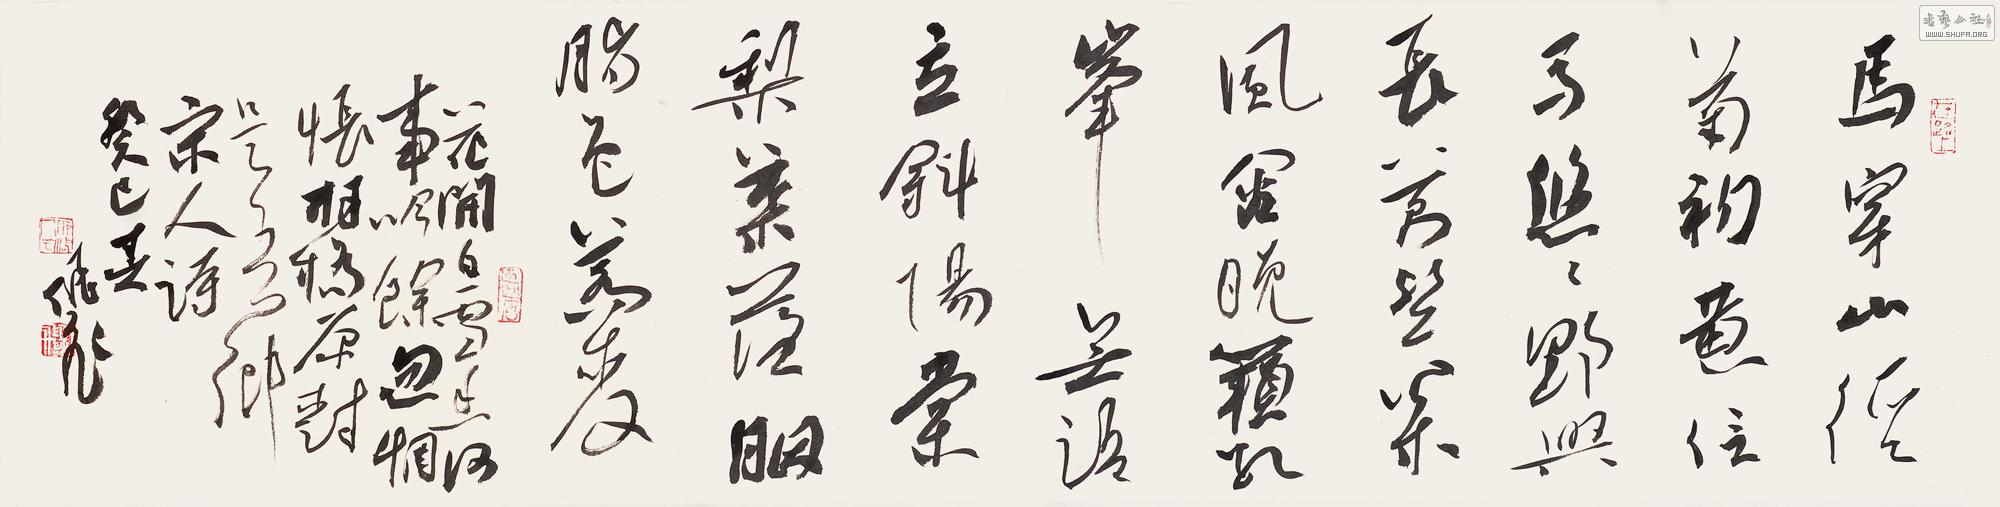 馬穿山徑
菊初黃信
馬悠々野興
長萬壑葉
風含晚籟數
峯無語
立斜陽棠
梨葉落胭
脂色蕎麥
花開白雪香何
事吟餘忽惆
悵村橋原樹
是吾鄉
宋人詩
癸巳
书艺公社
WWW.SHUFA.ORG